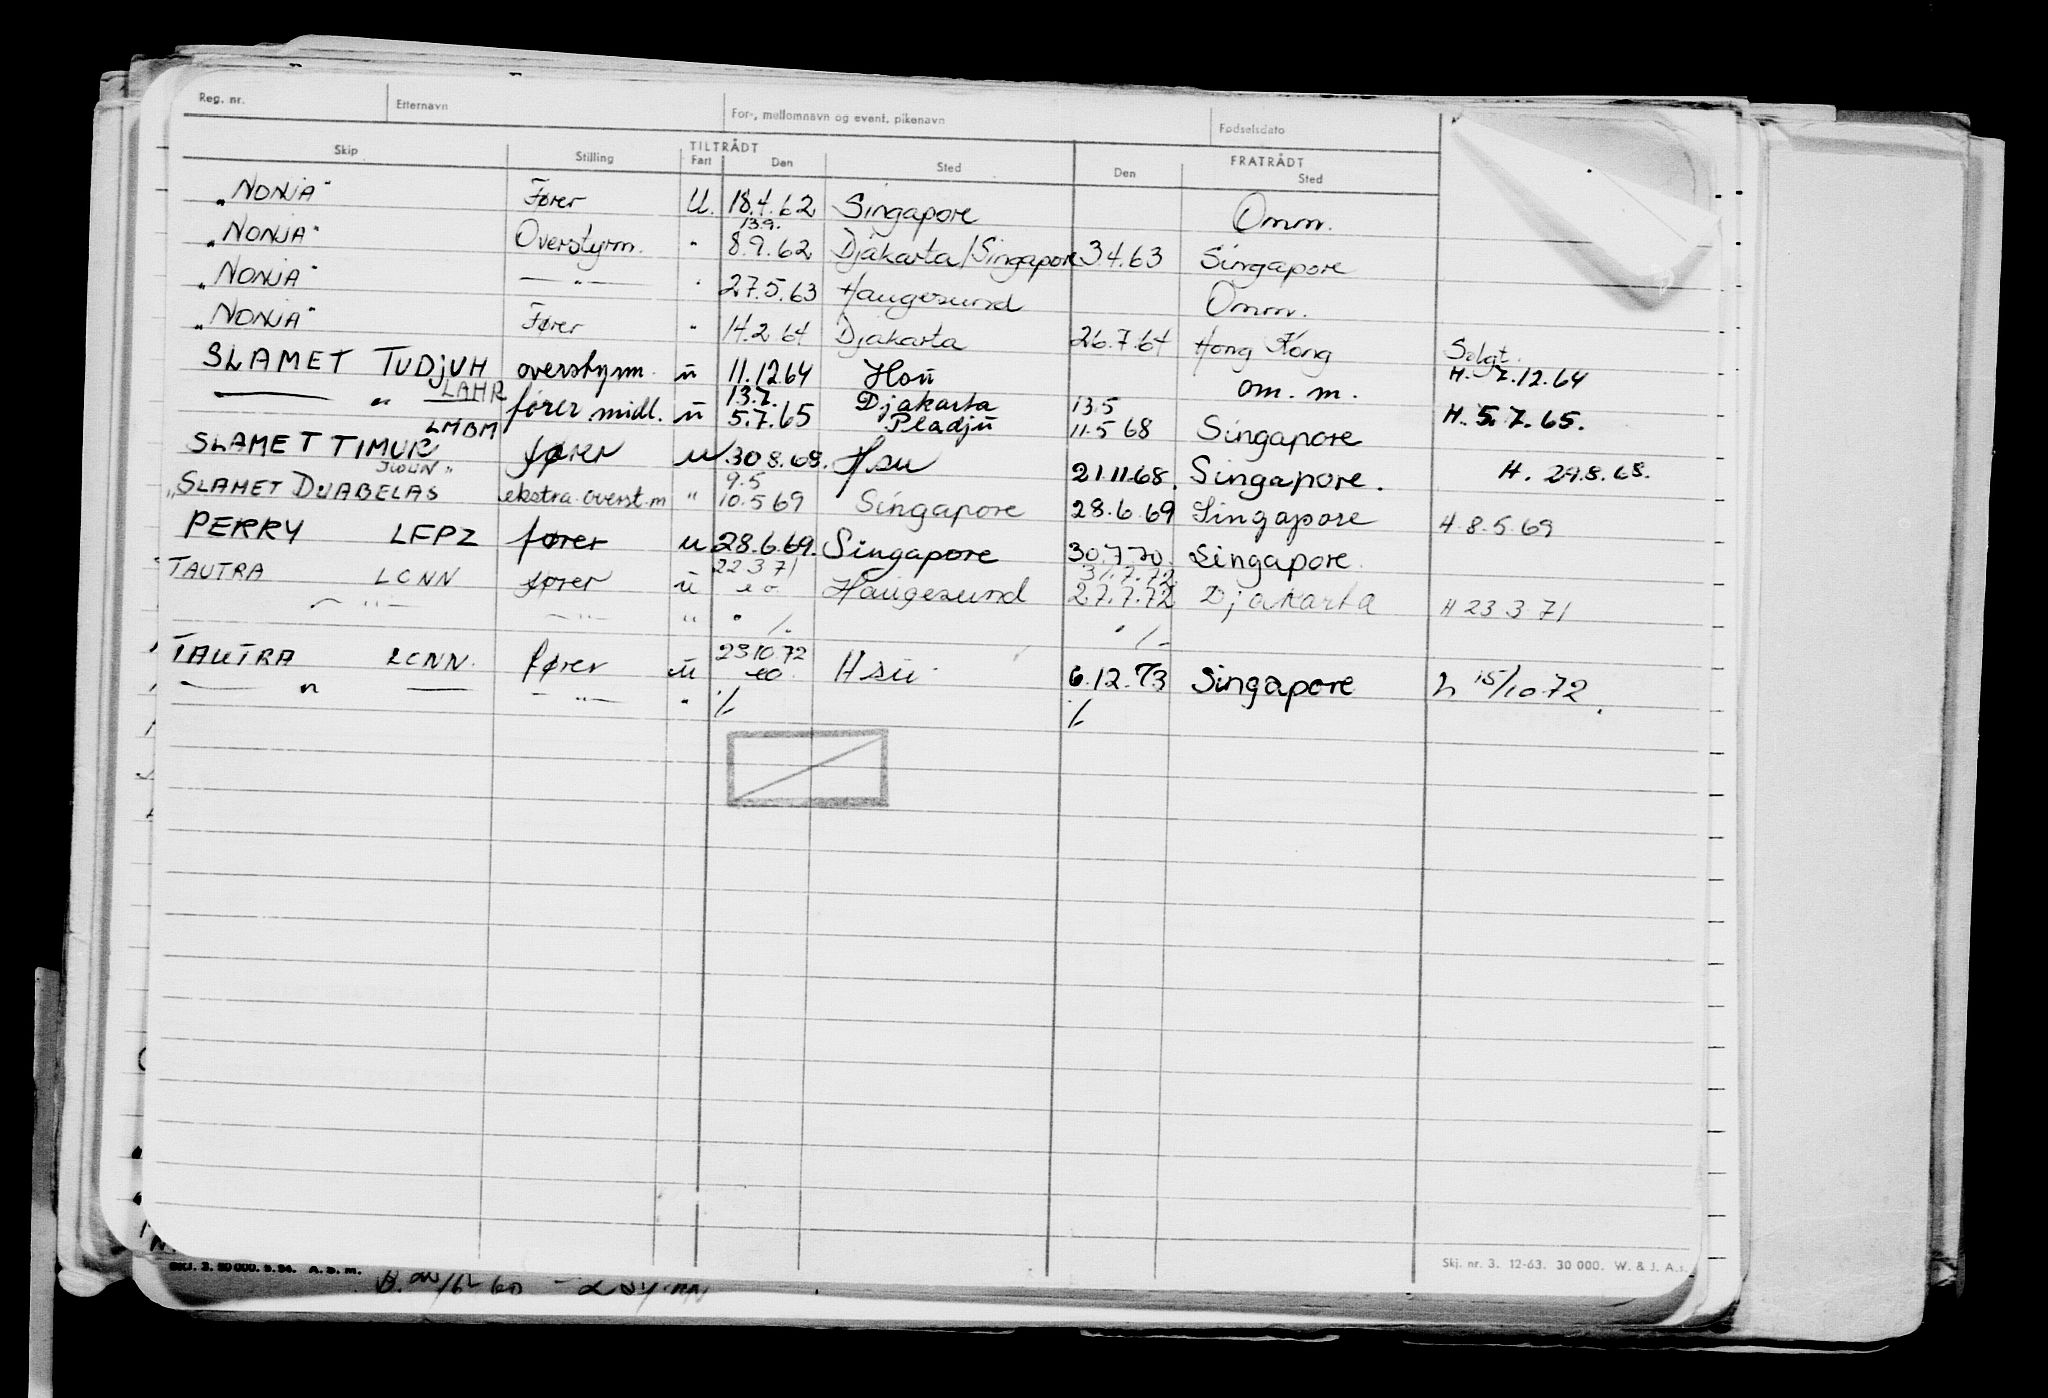 Reg. nr. Etternavn For-, mellomnavn og event. pikenavn Fødselsdato
TILTRÅDT FRATRÅDT
Skip Stilling Fart Den Sted Den Sted
„NONJA" Fører U. 18.4.62 Singapore Omm.
13.9.
„NONJA" Overstyrm. " 8.9.62 Djakarta/Singapore 3 4.63 Singapore
„NONJA" — " — " 27.5.63 Haugesund Omm.
„NONJA" Fører " 14.2 64 Djakarta 26.7.64 Hong Kong Solgt.
SLAMET TUDJUH overstyrm. u 11.12.64 Hou om. m. H. 7.12.64
LAHR 13.7. Djakarta 13.5
— " — fører midl. u 5.7.65 Pladju 11.5 68 Singapore H. 5.7.65.
LMBM
SLAMET TIMUR fører u 30 8.68. Hsu 21.11.68. Singapore. H. 29.8.68.
9.5
„SLAMET DUABELAS" ekstra overst.m " 10.5 69 Singapore 28.6.69 Singapore H 8.5.69
PERRY LFPZ fører u 28.6.69. Singapore 30.7.70. Singapore.
22 3 71 31.7.72
TAUTRA LCNN fører u eo Haugesund 27.7.72 Djakarta H 23 3 71
— " — — " — " ./. ./.
23.10.72
TAUTRA LCNN. fører u eo. Hsu 6.12.73 Singapore h 15/10.72
— " — — " — " ./. ./.
SKJ. 3. 50 000. 5.54. A. D. M. Skj. nr. 3. 12-63. 30 000. W. & J. A.s.